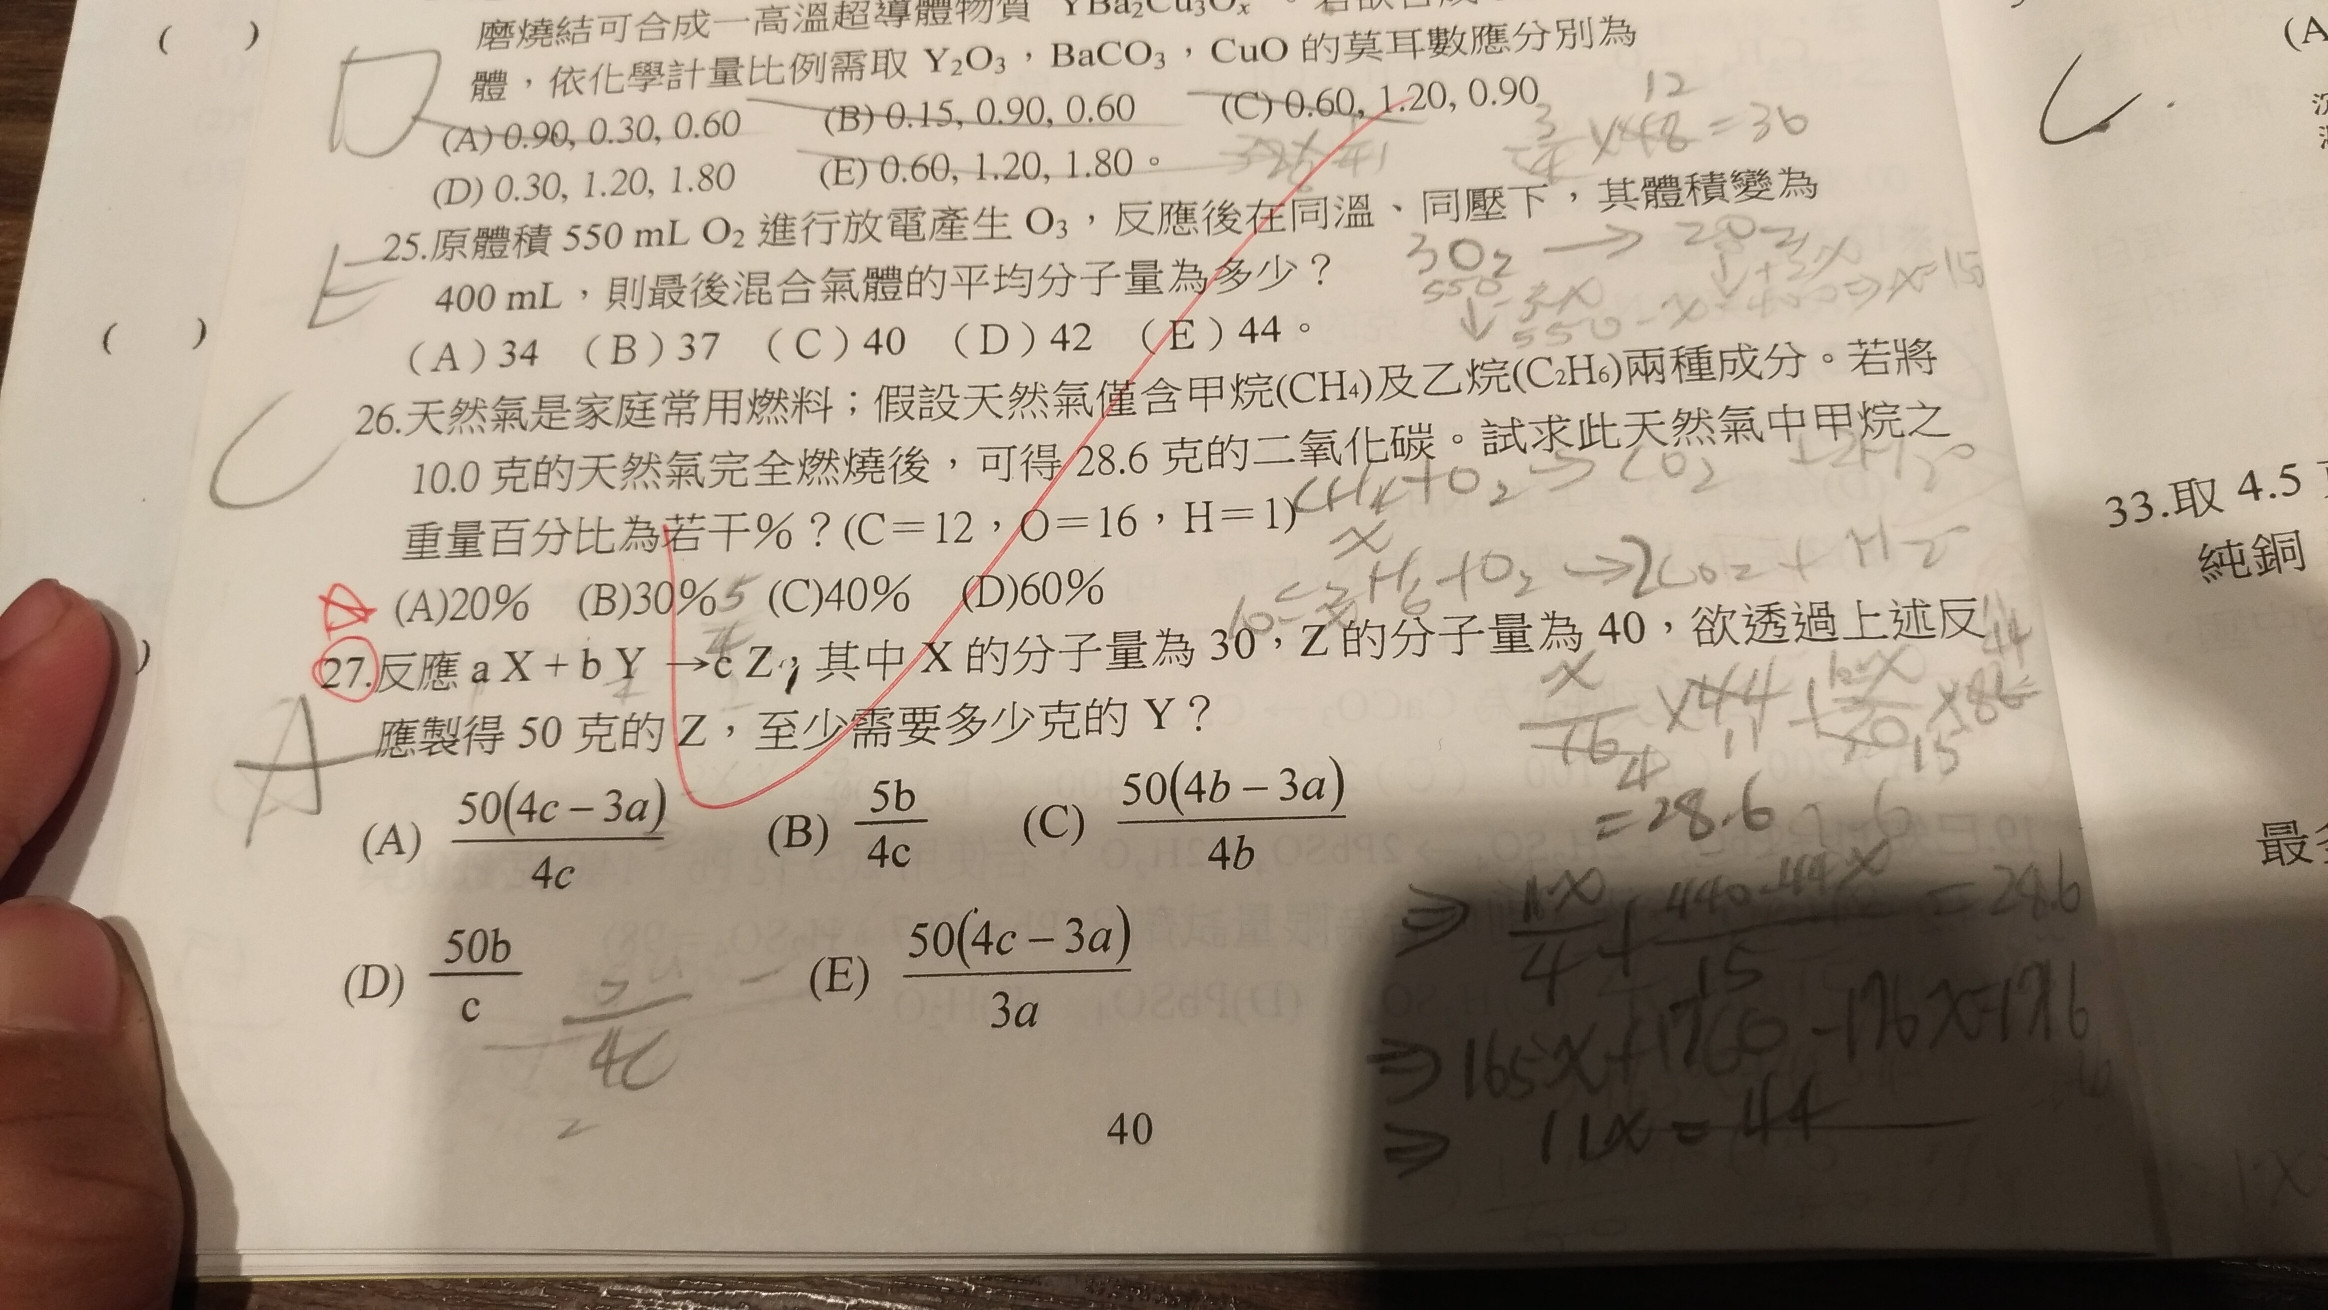 磨燒結可合成一高溫超導體物質 YBa₂Cu₃Oₓ。若欲合成
體，依化學計量比例需取 Y₂O₃，BaCO₃，CuO 的莫耳數應分別為
D
(A) 0.90, 0.30, 0.60 (B) 0.15, 0.90, 0.60 (C) 0.60, 1.20, 0.90
(D) 0.30, 1.20, 1.80 (E) 0.60, 1.20, 1.80。
3/4 × 48 = 36
12
E
25.原體積 550 mL O₂ 進行放電產生 O₃，反應後在同溫、同壓下，其體積變為
400 mL，則最後混合氣體的平均分子量為多少？
(A) 34 (B) 37 (C) 40 (D) 42 (E) 44。
3O₂ → 2O₃
550
-3x +2x
550 - x = 400 ⇒ x = 150
C
26.天然氣是家庭常用燃料；假設天然氣僅含甲烷(CH₄)及乙烷(C₂H₆)兩種成分。若將
10.0 克的天然氣完全燃燒後，可得 28.6 克的二氧化碳。試求此天然氣中甲烷之
重量百分比為若干%？(C＝12，O＝16，H＝1)
(A)20% (B)30% (C)40% (D)60%
CH₄ + O₂ → CO₂ + 2H₂O
x
C₂H₆ + O₂ → 2CO₂ + H₂O
10-x
= 28.6
⇒ 11x/4 + 440-44x/15 = 28.6
⇒ 165x + 1760 - 176x = 1716
⇒ 11x = 44
A
27.反應 a X + b Y → c Z，其中 X 的分子量為 30，Z 的分子量為 40，欲透過上述反
應製得 50 克的 Z，至少需要多少克的 Y？
(A) 50(4c－3a)/4c (B) 5b/4c (C) 50(4b－3a)/4b
(D) 50b/c (E) 50(4c－3a)/3a
40
C
(A
33.取 4.5
純銅
最多